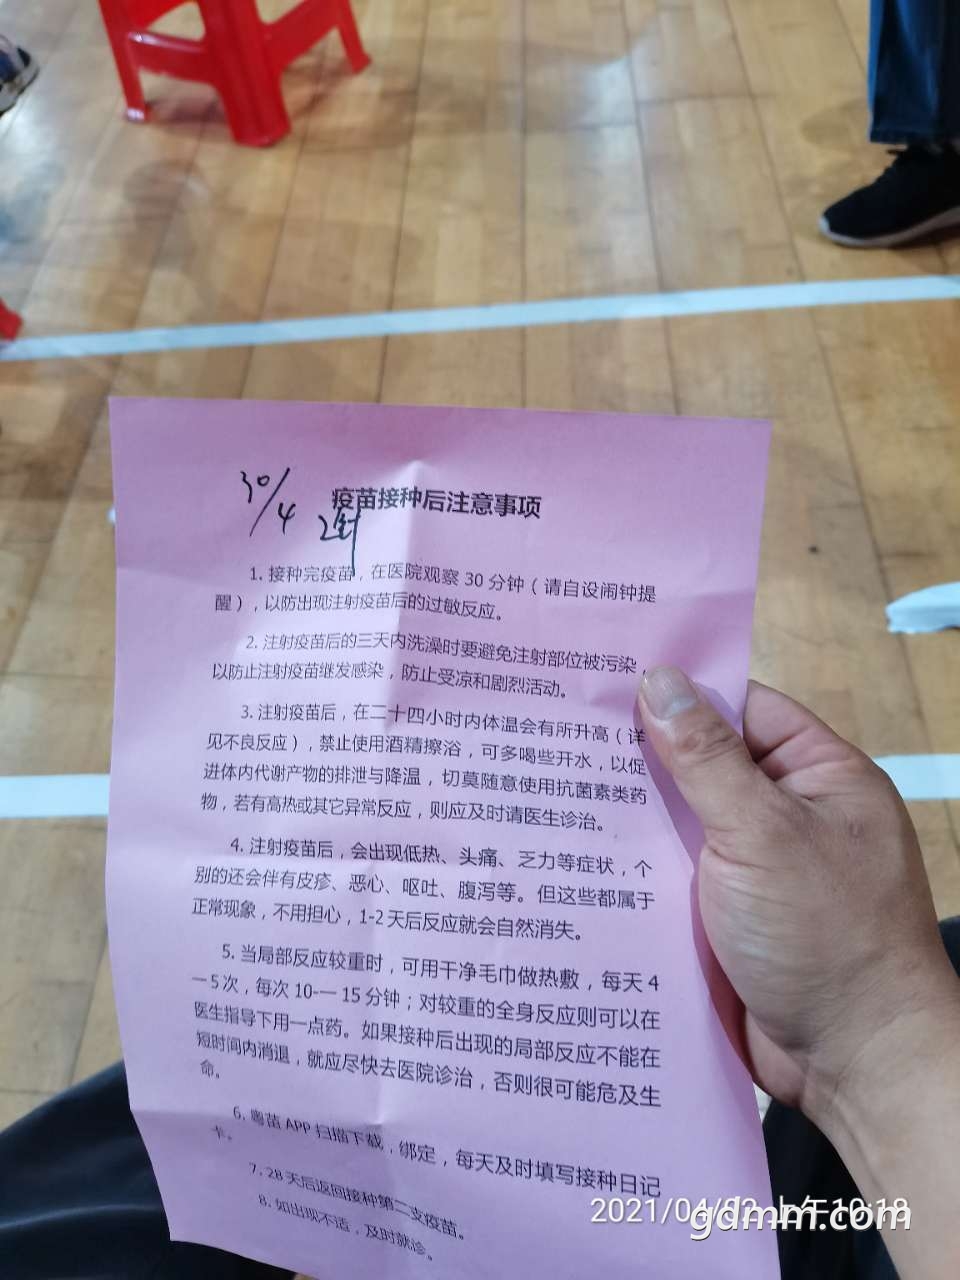 30/4 2针
疫苗接种后注意事项
1. 接种完疫苗，在医院观察 30 分钟（请自设闹钟提
醒），以防出现注射疫苗后的过敏反应。
2. 注射疫苗后的三天内洗澡时要避免注射部位被污染，
以防止注射疫苗继发感染，防止受凉和剧烈活动。
3. 注射疫苗后，在二十四小时内体温会有所升高（详
见不良反应），禁止使用酒精擦浴，可多喝些开水，以促
进体内代谢产物的排泄与降温，切莫随意使用抗菌素类药
物，若有高热或其它异常反应，则应及时请医生诊治。
4. 注射疫苗后，会出现低热、头痛、乏力等症状，个
别的还会伴有皮疹、恶心、呕吐、腹泻等。但这些都属于
正常现象，不用担心，1-2 天后反应就会自然消失。
5. 当局部反应较重时，可用干净毛巾做热敷，每天 4
一 5 次，每次 10-一 15 分钟；对较重的全身反应则可以在
医生指导下用一点药。如果接种后出现的局部反应不能在
短时间内消退，就应尽快去医院诊治，否则很可能危及生
命。
6. 粤苗 APP 扫描下载，绑定，每天及时填写接种日记
卡。
7. 28 天后返回接种第二支疫苗。
8. 如出现不适，及时就诊。
2021/04/02 上午10:18
gdmm.com